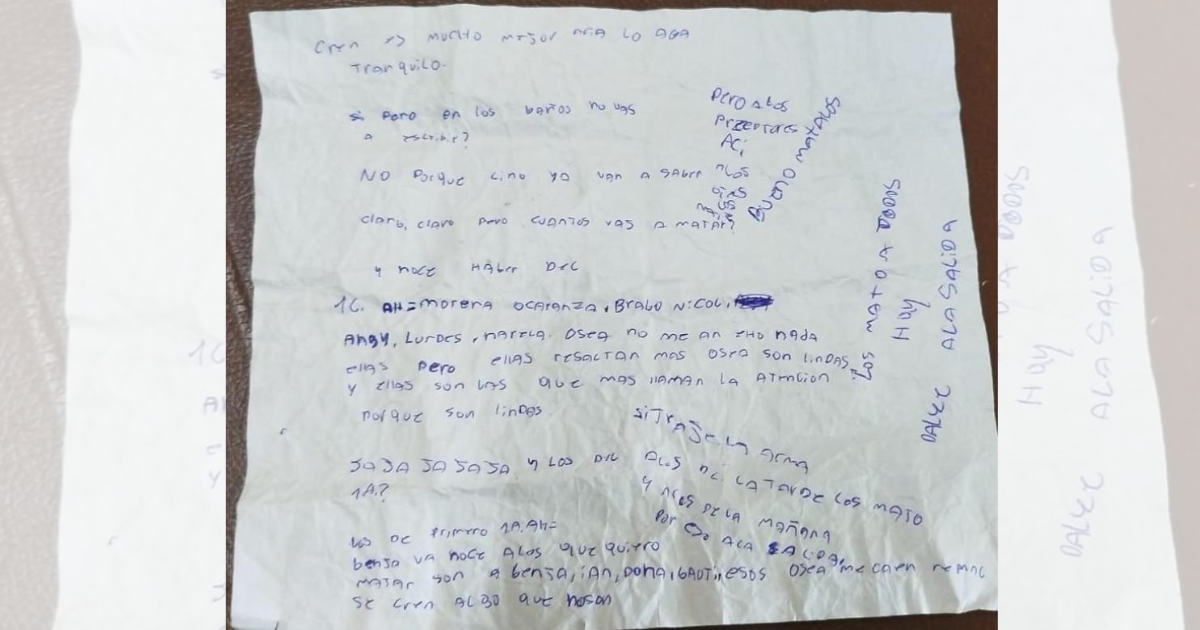 Cren es mucho mejor mia lo aga
Tranquilo.
si pero en los baños no vas
a escribir?
NO Porque cino ya van a saber
claro, claro pero cuantos vas a matar?
y noce Haber DEL
1C. AH= morena ocaranza, Brabo Nicol,
Angy, Lurdes, . Osea no me an nada
ellas pero ellas resaltan mas osea son lindas
y ellas son las que mas llaman la atencion
porque son lindas
JA JA JA JA JA y los del
1A?
los de Primero 1A. AH=
benja va noce Alos que quiero
matar son a benja, ian, Dona, bauti, esos osea me caen
se cren algo que noson
Pero alos
Przeptores
Aci
Alos
Bueno matalos
soy
mato a todos
Hoy
Dalee ala salida
si traje la arma
Alos de la tarde los mato
y alos de la mañana
por aca